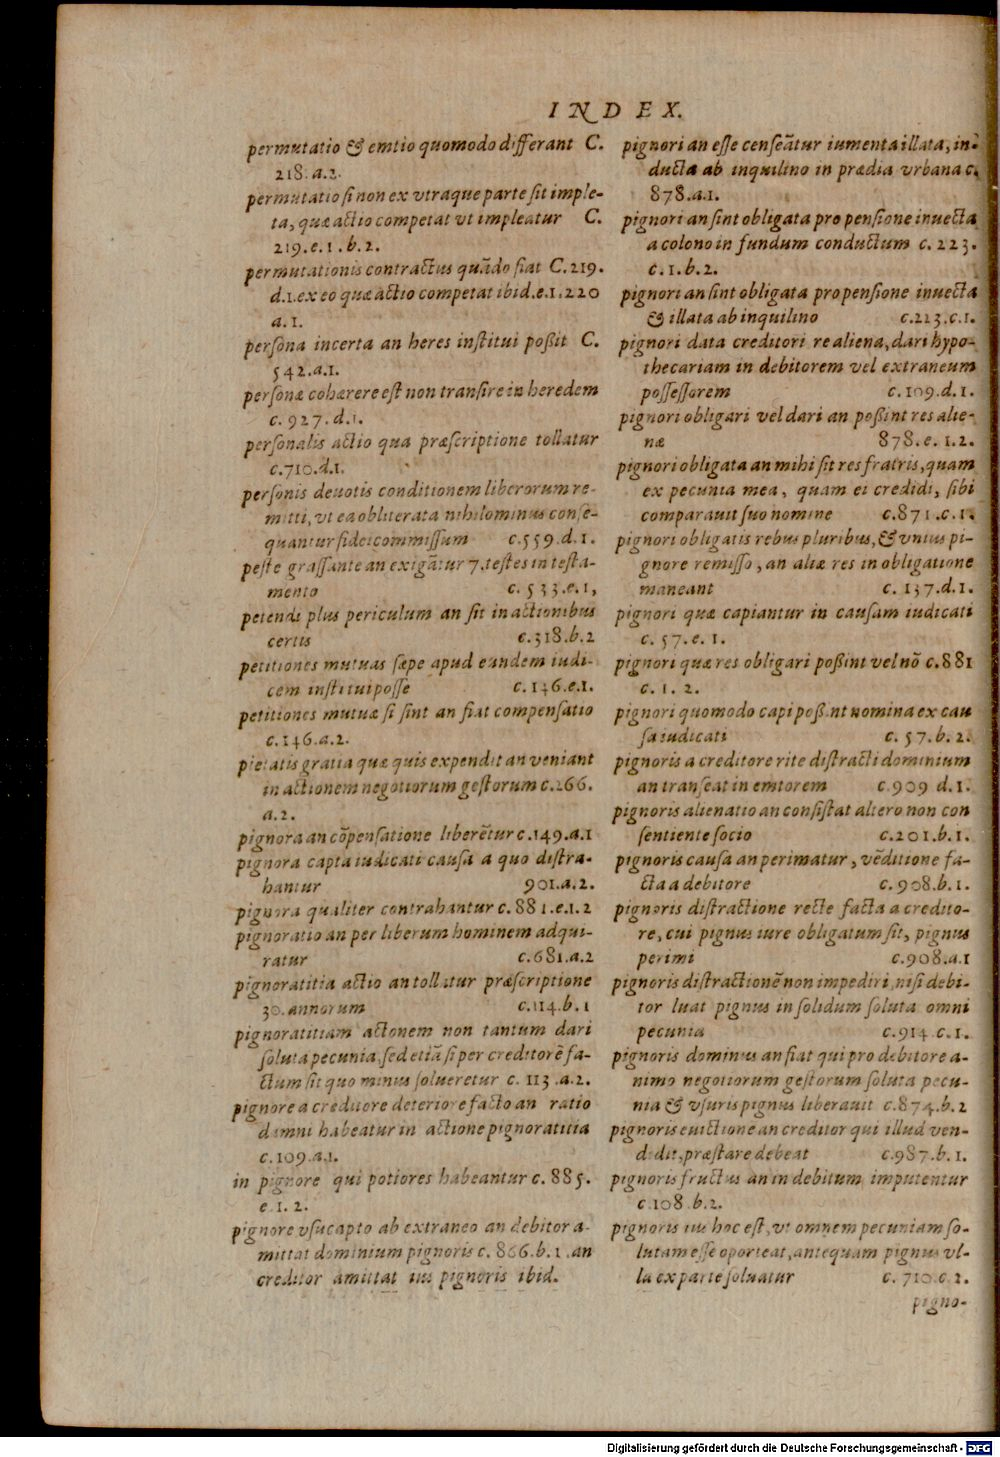 INDEX.
permutatio & emtio quomodo differant C.
218.a.2.
permutatio si non ex vtraque parte sit imple-
ta, quæ actio competat vt impleatur C.
219.e.1.b.2.
permutationis contractus quãdo fiat C.219.
d.1.ex eo quæ actio competat ibid.e.1.220
a.1.
persona incerta an heres institui poßit C.
542.a.1.
personæ cohærere est non transire in heredem
c.927.d.1.
personalis actio qua præscriptione tollatur
c.710.d.1.
personis deuotis conditionem liberorum re-
mitti, vt ea obliterata nihilominus conse-
quantur fideicommissum c.559.d.1.
peste grassante an exigãtur 7.testes in testa-
mento c.533.e.1,
petendi plus periculum an sit in actionibus
certis c.318.b.2
petitiones mutuas sæpe apud eundem iudi-
cem institui posse c.146.e.1.
petitiones mutuæ si sint an fiat compensatio
c.146.a.2.
pietatis gratia quæ quis expendit an veniant
in actionem negotiorum gestorum c.266.
a.2.
pignora an cõpensatione liberẽtur c.149.a.1
pignora capta iudicati causa a quo distra-
hantur 901.a.2.
pignora qualiter contrahantur c.881.e.1.2
pignoratio an per liberum hominem adqui-
ratur c.681.a.2
pignoratitia actio an tollatur præscriptione
30.annorum c.114.b.1
pignoratitiam actonem non tantum dari
soluta pecunia, sed etiã si per creditorẽ fa-
ctum sit quo minus solueretur c. 113.a.2.
pignore a creditore deteriore facto an ratio
damni habeatur in actione pignoratitia
c.109.a.1.
in pignore qui potiores habeantur c. 885.
e.1.2.
pignore vsucapto ab extraneo an debitor a-
mittat dominium pignoris c. 866.b.1.an
creditor amittat ius pignoris ibid.
pignori an esse censeãtur iumenta illata, in-
ducta ab inquilino in prædia vrbana c.
878.a.1.
pignori an sint obligata pro pensione inuecta
a colono in fundum conductum c.223.
c.1.b.2.
pignori an sint obligata pro pensione inuecta
& illata ab inquilino c.223.c.1.
pignori data creditori re aliena, dari hypo-
thecariam in debitorem vel extraneum
possessorem c.109.d.1.
pignori obligari vel dari an poßint res alie-
næ 878.e.1.2.
pignori obligata an mihi sit res fratris, quam
ex pecunia mea, quam ei credidi, sibi
comparauit suo nomine c.871.c.1.
pignori obligatis rebus pluribus, & vnius pi-
gnore remisso, an aliæ res in obligatione
maneant c.137.d.1.
pignori quæ capiantur in causam iudicati
c. 57.e.1.
pignori quæ res obligari poßint vel nõ c.881
c.1.2.
pignori quomodo capi poßint nomina ex cau
sa iudicati c. 57.b.2.
pignoris a creditore rite distracti dominium
an transeat in emtorem c.909 d.1.
pignoris alienatio an consistat altero non con
sentiente socio c.201.b.1.
pignoris causa an perimatur, vẽditione fa-
cta a debitore c.908.b.1.
pignoris distractione recte facta a credito-
re, cui pignus iure obligatum sit, pignus
perimi c.908.a.1
pignoris distractionẽ non impediri, nisi debi-
tor luat pignus in solidum soluta omni
pecunia c.914.c.1.
pignoris dominus an fiat qui pro debitore a-
nimo negotiorum gestorum soluta pecu-
nia & vsuris pignus liberauit c.874.b.2
pignoris euictione an creditor qui illud ven-
didit, præstare debeat c.987.b.1.
pignoris fructus an in debitum imputentur
c.108.b.2.
pignoris ius hoc est, vt omnem pecuniam so-
lutam esse oporteat, antequam pignus vl-
la ex parte soluatur c.710.c.2.
pigno-
Digitalisierung gefördert durch die Deutsche Forschungsgemeinschaft - DFG